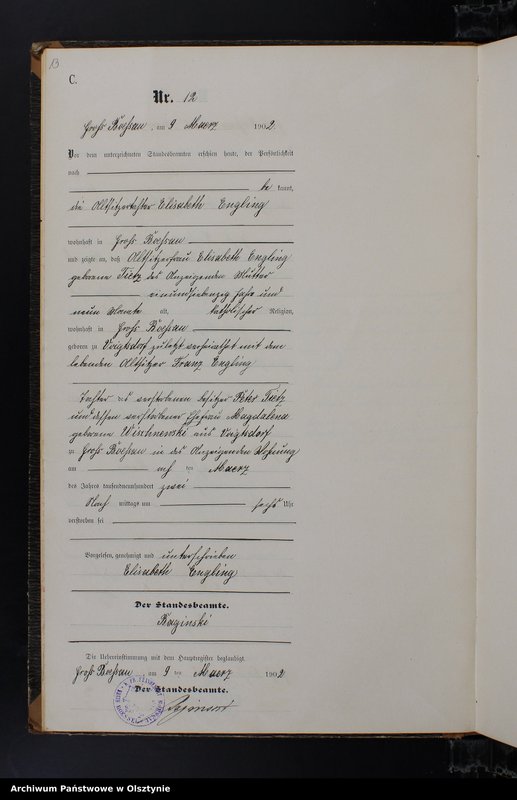 13
C.
Nr. 12
Groß Boessau, am 9 Maerz 1902.
Vor dem unterzeichneten Standesbeamten erschien heute, der Persönlichkeit
nach
be kannt,
die Altsitzertochter Elisabeth Engling
wohnhaft in Groß Boessau
und zeigte an, daß Altsitzerfrau Elisabeth Engling
geborene Tietz des Anzeigenden Mutter
einundsiebenzig Jahre und
neun Monate alt, katholischer Religion,
wohnhaft in Groß Boessau
geboren zu Voigtsdorf zuletzt verheirathet mit dem
lebenden Altsitzer Franz Engling
Tochter des verstorbenen Besitzer Peter Tietz
und dessen verstorbener Ehefrau Magdalena
geborene Wischnewski aus Voigtsdorf
zu Groß Boessau in des Anzeigenden Wohnung
am acht ten Maerz
des Jahres tausendneunhundert zwei
Nach mittags um sechs Uhr
verstorben sei
Vorgelesen, genehmigt und unterschrieben
Elisabeth Engling
Der Standesbeamte.
Raginski
Die Uebereinstimmung mit dem Hauptregister beglaubigt
Groß Boessau, am 9 ten Maerz 1902
Der Standesbeamte.
Archiwum Państwowe w Olsztynie